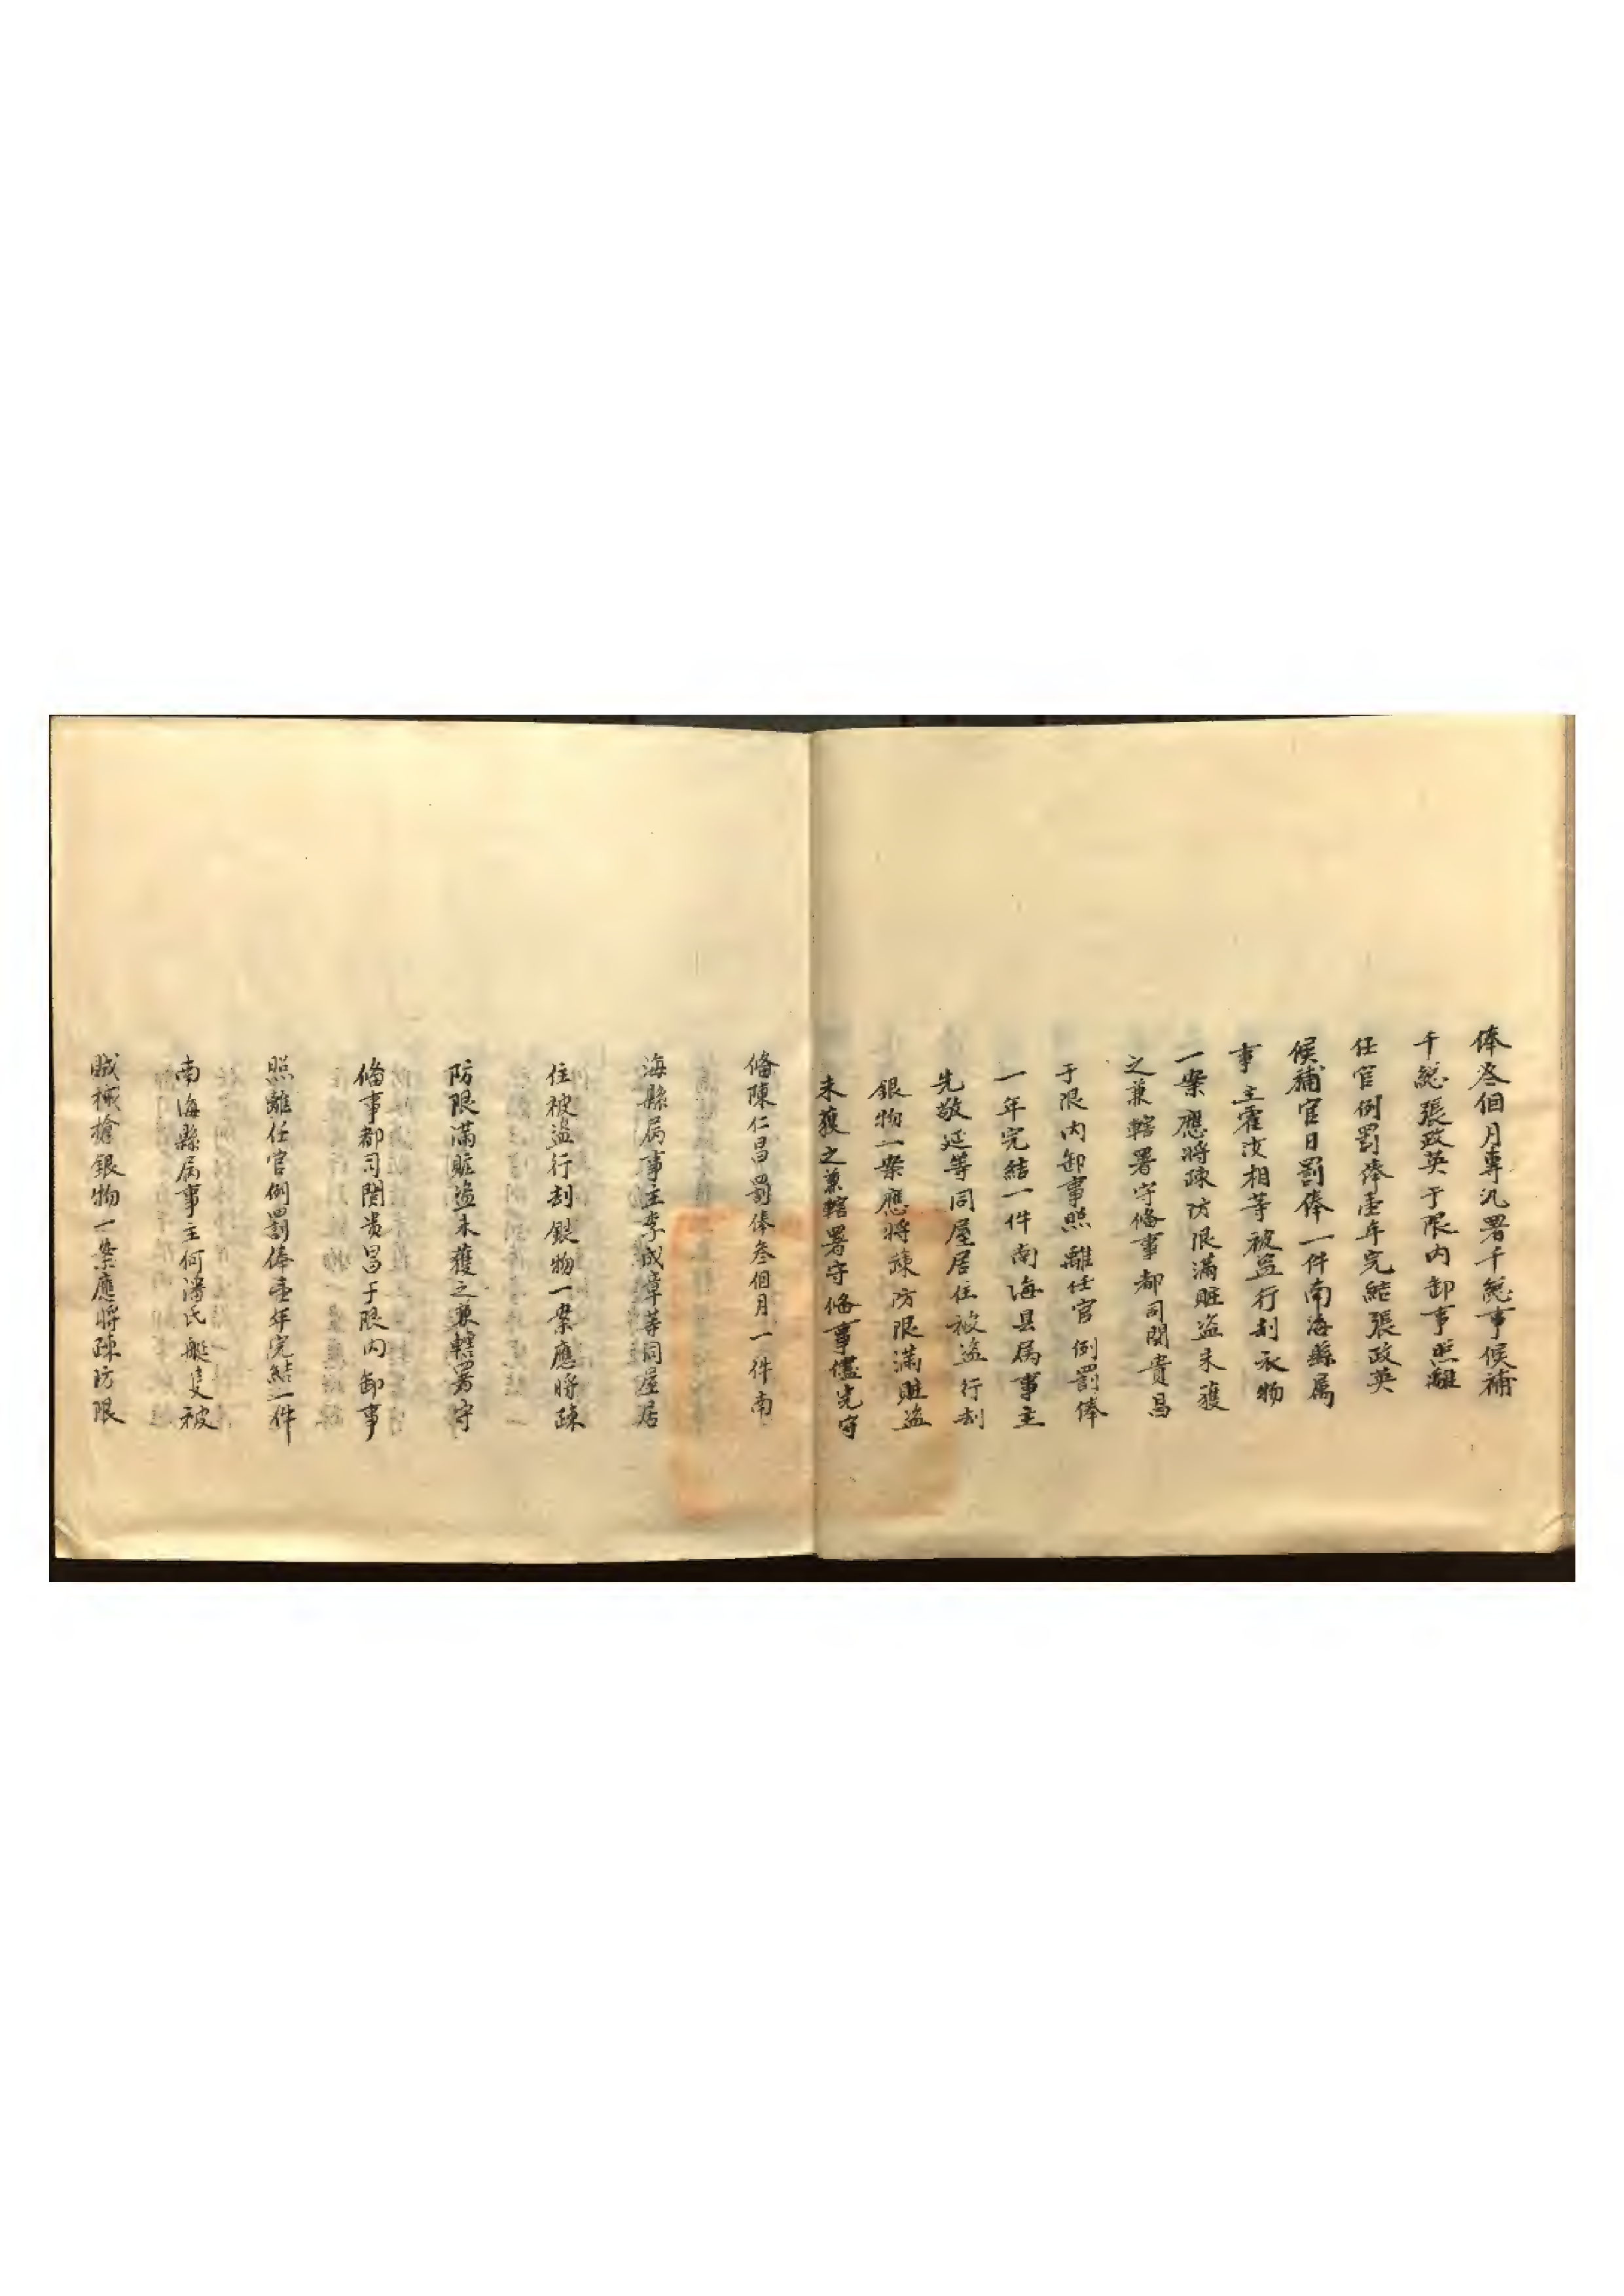 俸叁個月專汛署千総事候補
千総張政英于限内卸事照離
任官例罰俸壹年完結張政英
候補官日罰俸一件南海縣属
事主霍汝相等被盗行刦衣物
一案應將疎防限滿賍盗未獲
之兼轄署守俻事都司関貴昌
于限内卸事照離任官例罰俸
一年完結一件南海县属事主
先敬延等同屋居住被盗行刦
銀物一案應將疎防限滿賍盗
未獲之兼轄署守俻事儘先守
俻陳仁昌罰俸叁個月一件南
海縣属事主李成章等同屋居
住被盗行刦銀物一案應將疎
防限滿賍盗未獲之兼轄署守
俻事都司関贵昌于限内卸事
照離任官例罰俸壹年完結一件
南海縣属事主何潘氏艇隻被
賊械搶銀物一案應將疎防限